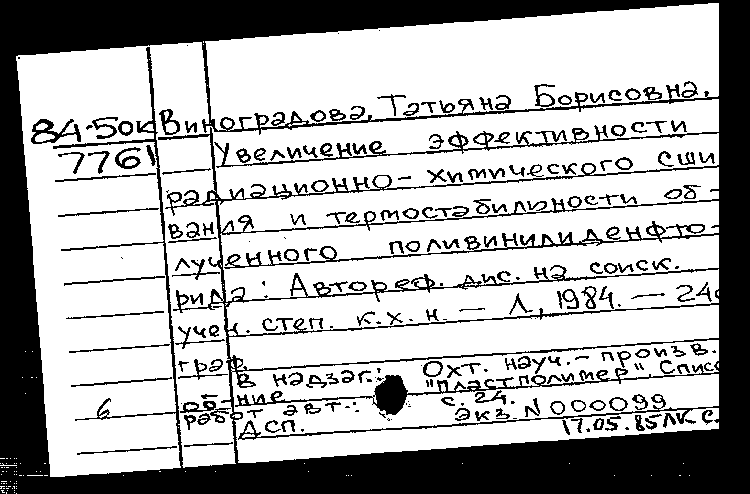 84-5ок Виноградова, Татьяна Борисовна.
7761 Увеличение эффективности
радиационно-химического сши
вания и термостабильности об-
лученного поливинилиденфто-
рида: Автореф. дис. на соиск.
учен. степ. к.х.н. — Л., 1984. — 24с
граф.
В надзаг.: Охт. науч.-произв.
об-ние "Пластполимер". Списо
работ авт.: с. 24.
6
ДСП. Экз. N 000099
17.05.85 ЛК с.